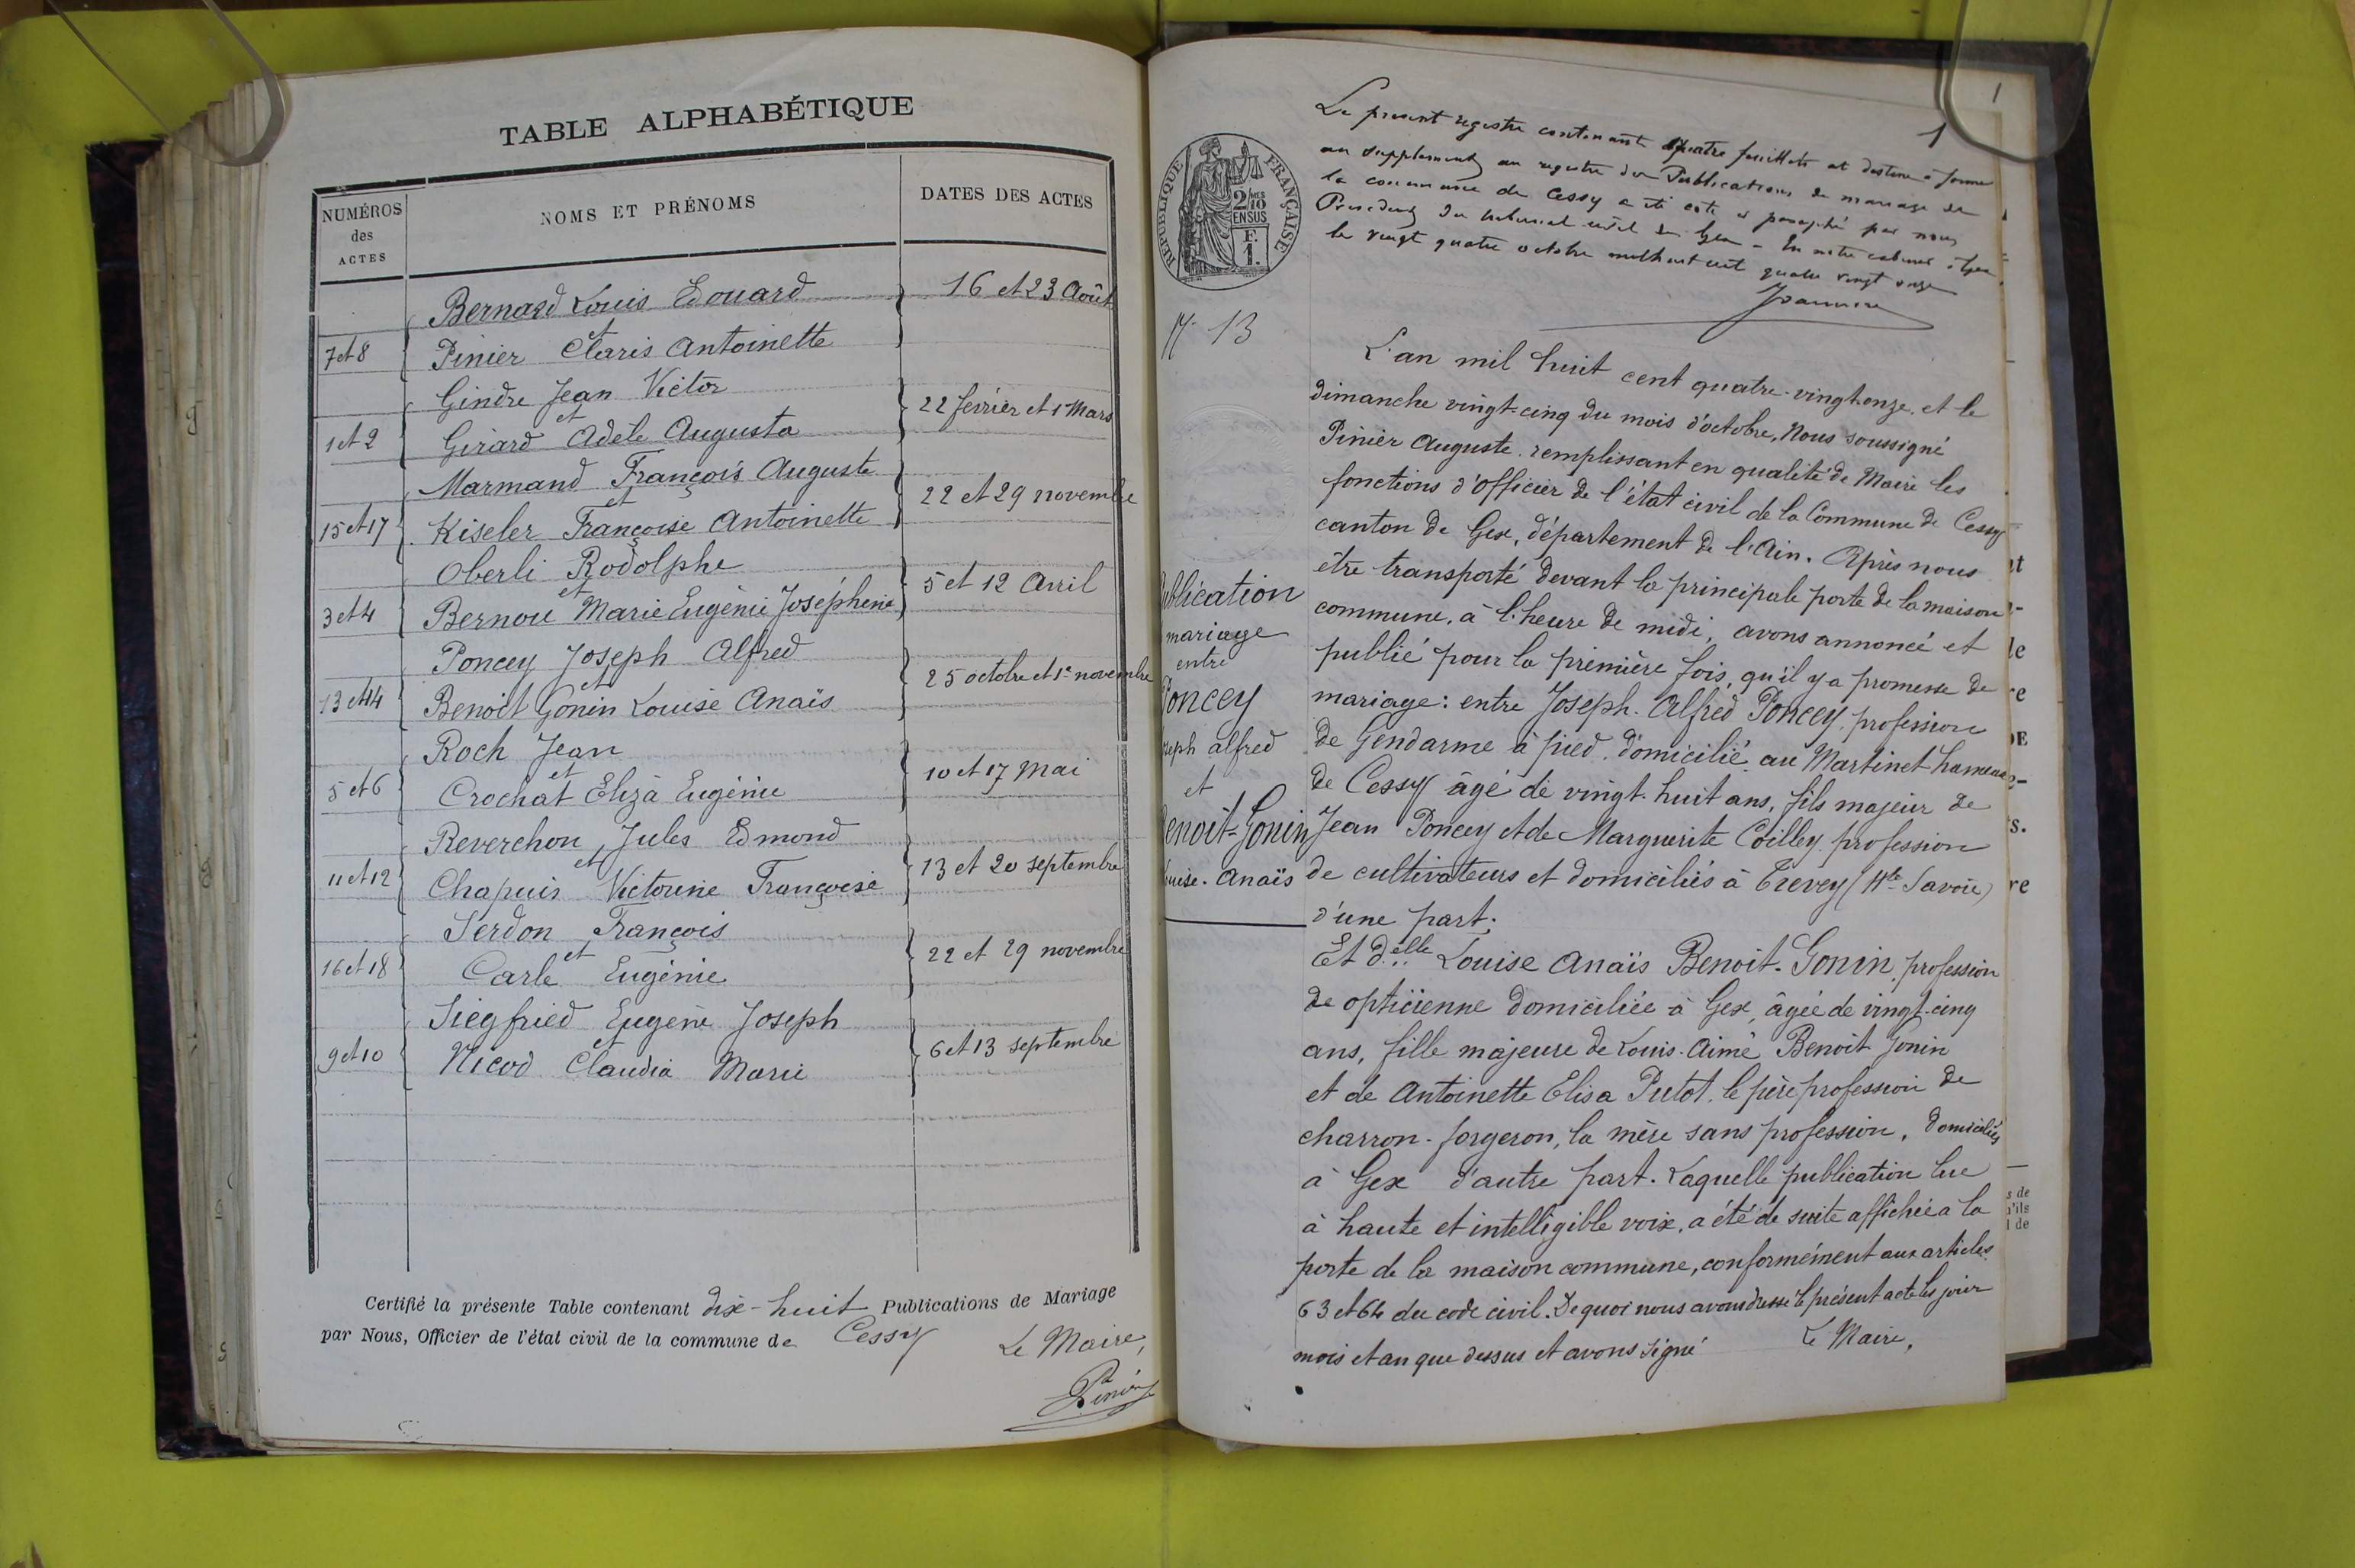 TABLE ALPHABÉTIQUE
NUMÉROS
des
ACTES
NOMS ET PRÉNOMS
DATES DES ACTES
Bernard Louis Edouard
16 et 23 Août
et
7 et 8
Pinier Claris Antoinette
Gindre Jean Victor
22 février et 1er Mars
et
1 et 2
Girard Adele Augusta
Marmand François Auguste
22 et 29 novembre
et
15 et 17
Kiseler Françoise Antoinette
Oberli Rodolphe
5 et 12 Avril
et
3 et 4
Bernou Marie Eugénie Joséphine
Poncey Joseph Alfred
25 octobre et 1er novembre
et
13 et 14
Benoit Gonin Louise Anaïs
Roch Jean
10 et 17 Mai
et
5 et 6
Crochat Eliza Eugénie
Reverchon Jules Edmond
13 et 20 septembre
et
11 et 12
Chapuis Victorine Françoise
Serdon François
22 et 29 novembre
et
16 et 18
Carle Eugénie
Siegfried Eugène Joseph
6 et 13 septembre
et
9 et 10
Nicod Claudia Marie
Certifié la présente Table contenant dix-huit Publications de Mariage
par Nous, Officier de l'état civil de la commune de Cessy
Le Maire,
Pinier
1
1
RÉPUBLIQUE FRANÇAISE
2/10
EN SUS
F.
1.
Le présent registre contenant quatre feuillets et destiné à former
un supplément au registre des Publications de mariage de
la commune de Cessy a été coté et paraphé par nous
Président du tribunal civil de Gex - En notre cabinet à Gex
le vingt quatre octobre mil huit cent quatre vingt onze
No 13
L'an mil huit cent quatre-vingt-onze, et le
dimanche vingt-cinq du mois d'octobre, Nous soussigné
Pinier Auguste, remplissant en qualité de Maire les
fonctions d'Officier de l'état civil de la Commune de Cessy
canton de Gex, département de l'Ain. Après nous
être transporté devant la principale porte de la maison
commune, à l'heure de midi, avons annoncé et
publié pour la première fois, qu'il y a promesse de
mariage: entre Joseph-Alfred Poncey, profession
de Gendarme à pied, domicilié au Martinet hameau
de Cessy âgé de vingt-huit ans, fils majeur de
Jean Poncey et de Marguerite Coilley, profession
de cultivateurs et domiciliés à Trevey (Hte Savoie)
d'une part;
ublication
mariage
entre
Poncey
seph alfred
et
Benoit-Gonin
ouise-Anaïs
Et Delle Louise Anaïs Benoit-Gonin, profession
de opticienne domiciliée à Gex, âgée de vingt-cinq
ans, fille majeure de Louis-Aimé Benoit Gonin
et de Antoinette Elisa Putot, le père profession de
charron-forgeron, la mère sans profession, domiciliés
à Gex d'autre part. Laquelle publication lue
à haute et intelligible voix, a été de suite affichée à la
porte de la maison commune, conformément aux articles
63 et 64 du code civil. De quoi nous avons dressé le présent acte les jour
mois et an que dessus et avons signé
Le Maire,